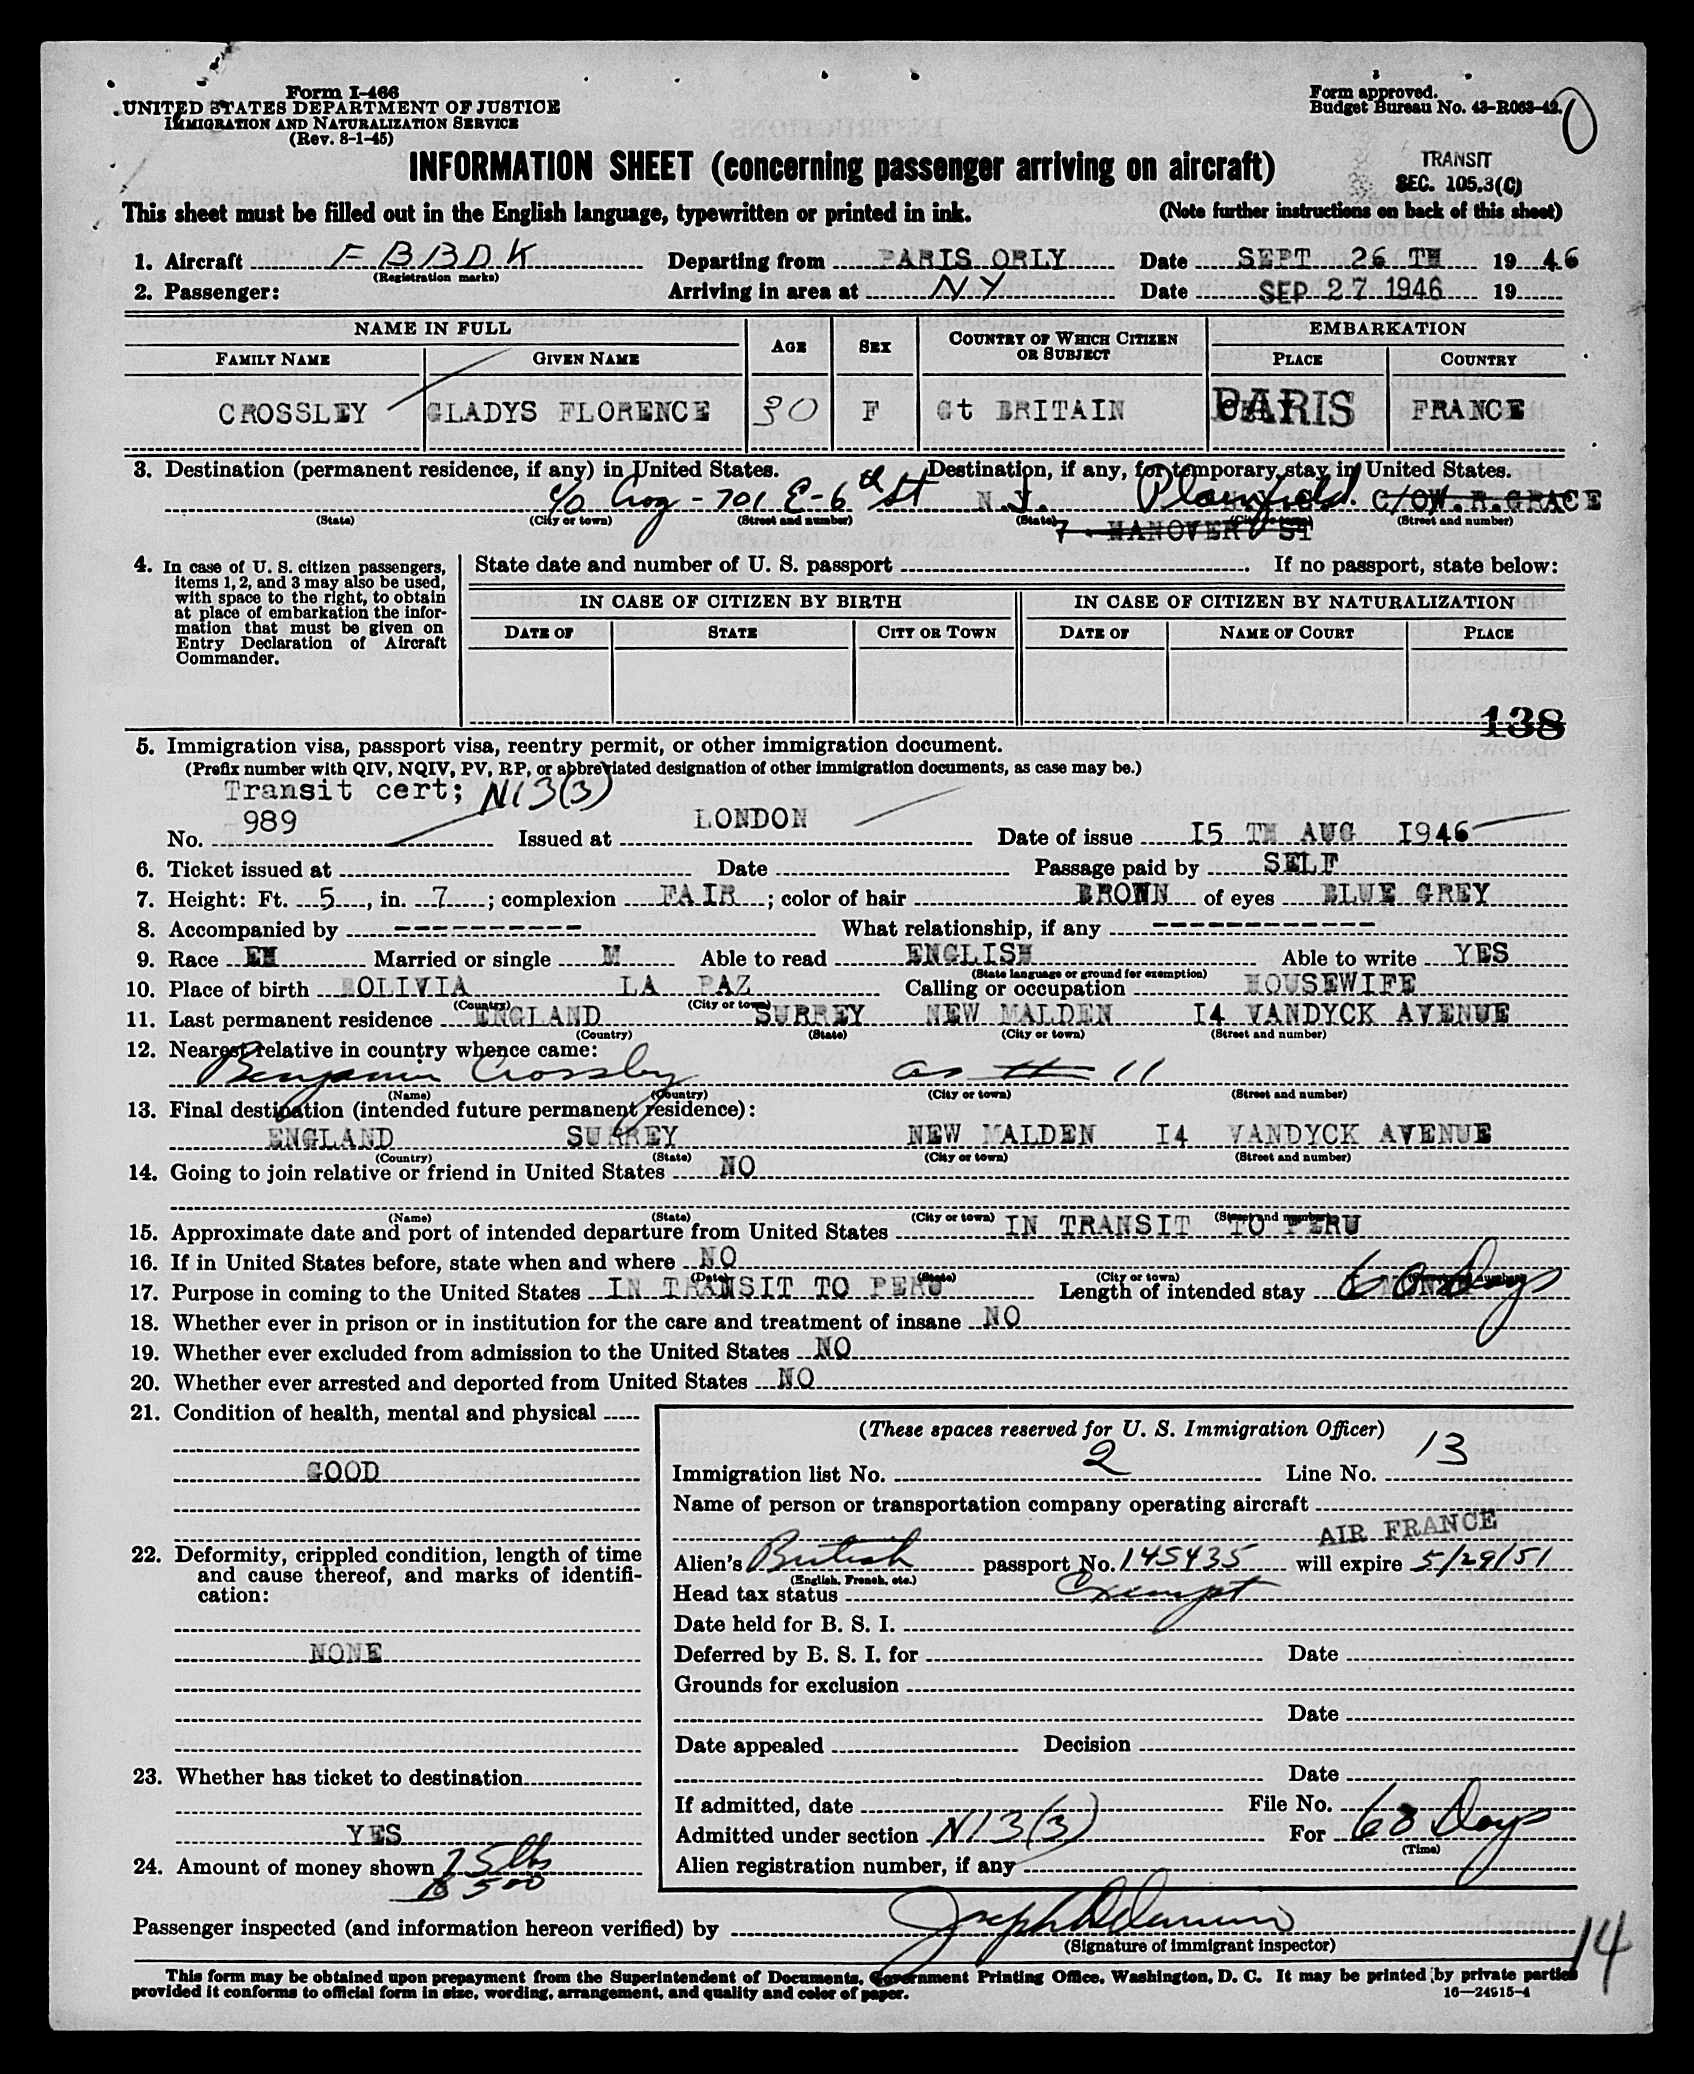 Form I-466
UNITED STATES DEPARTMENT OF JUSTICE
IMMIGRATION AND NATURALIZATION SERVICE
(Rev. 8-1-45)
Form approved.
Budget Bureau No. 43-R063-42.
INFORMATION SHEET (concerning passenger arriving on aircraft)
TRANSIT
SEC. 105.3(C)
This sheet must be filled out in the English language, typewritten or printed in ink. (Note further instructions on back of this sheet)
1. Aircraft F BBDK Departing from PARIS ORLY Date SEPT 26 TH 19 46
(Registration marks)
2. Passenger: Arriving in area at NY Date SEP 27 1946 19
NAME IN FULL AGE SEX COUNTRY OF WHICH CITIZEN OR SUBJECT EMBARKATION
FAMILY NAME GIVEN NAME PLACE COUNTRY
CROSSLEY GLADYS FLORENCE 30 F Gt BRITAIN PARIS FRANCE
3. Destination (permanent residence, if any) in United States. Destination, if any, for temporary stay in United States.
c/o - 701 E-6 th St N.J. Plainfield. C/O W.R.GRACE
(State) (City or town) (Street and number) (State) (City or town) (Street and number)
7 HANOVER ST
4. In case of U. S. citizen passengers, items 1, 2, and 3 may also be used, with space to the right, to obtain at place of embarkation the information that must be given on Entry Declaration of Aircraft Commander.
State date and number of U. S. passport If no passport, state below:
IN CASE OF CITIZEN BY BIRTH IN CASE OF CITIZEN BY NATURALIZATION
DATE OF STATE CITY OR TOWN DATE OF NAME OF COURT PLACE
138
5. Immigration visa, passport visa, reentry permit, or other immigration document.
(Prefix number with QIV, NQIV, PV, RP, or abbreviated designation of other immigration documents, as case may be.)
Transit cert; N13(3)
No. 989 Issued at LONDON Date of issue I5 TH AUG I946
6. Ticket issued at Date Passage paid by SELF
7. Height: Ft. 5, in. 7; complexion FAIR; color of hair BROWN of eyes BLUE GREY
8. Accompanied by ---------- What relationship, if any ------------
9. Race EN Married or single M Able to read ENGLISH Able to write YES
(State language or ground for exemption)
10. Place of birth BOLIVIA LA PAZ Calling or occupation HOUSEWIFE
(Country) (City or town)
11. Last permanent residence ENGLAND SURREY NEW MALDEN I4 VANDYCK AVENUE
(Country) (State) (City or town) (Street and number)
12. Nearest relative in country whence came:
Benjamin Crossley as 11
(Name) (Country) (City or town) (Street and number)
13. Final destination (intended future permanent residence):
ENGLAND SURREY NEW MALDEN I4 VANDYCK AVENUE
(Country) (State) (City or town) (Street and number)
14. Going to join relative or friend in United States NO
(Name) (State) (City or town) (Street and number)
15. Approximate date and port of intended departure from United States IN TRANSIT TO PERU
16. If in United States before, state when and where NO
(Date) (State) (City or town) (Street and number)
17. Purpose in coming to the United States IN TRANSIT TO PERU Length of intended stay 60 Days
18. Whether ever in prison or in institution for the care and treatment of insane NO
19. Whether ever excluded from admission to the United States NO
20. Whether ever arrested and deported from United States NO
21. Condition of health, mental and physical
GOOD
22. Deformity, crippled condition, length of time and cause thereof, and marks of identification:
NONE
23. Whether has ticket to destination
YES
24. Amount of money shown 75 lbs
$ 500
(These spaces reserved for U. S. Immigration Officer)
Immigration list No. 2 Line No. 13
Name of person or transportation company operating aircraft
AIR FRANCE
Alien's British passport No. 145435 will expire 5/29/51
(English, French, etc.)
Head tax status Exempt
Date held for B. S. I.
Deferred by B. S. I. for Date
Grounds for exclusion
Date
Date appealed Decision
Date
If admitted, date File No.
Admitted under section N13(3) For 60 Days
(Time)
Alien registration number, if any
Passenger inspected (and information hereon verified) by
(Signature of immigrant inspector)
14
This form may be obtained upon prepayment from the Superintendent of Documents, Government Printing Office, Washington, D. C. It may be printed by private parties
provided it conforms to official form in size, wording, arrangement, and quality and color of paper.
16—24915-4